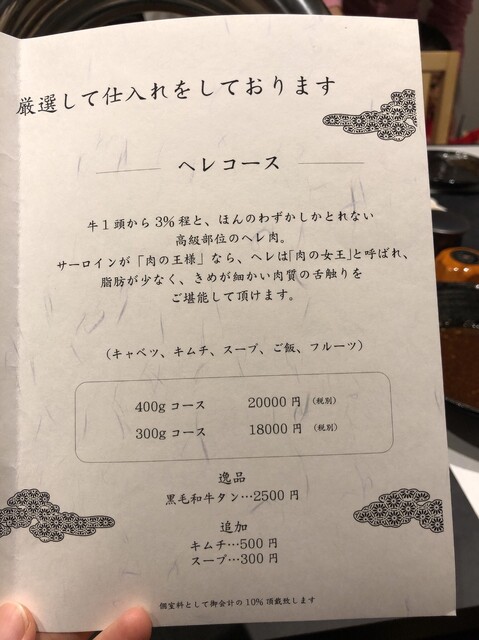 厳選して仕入れをしております
ヘレコース
牛1頭から3%程と、ほんのわずかしかとれない
高級部位のヘレ肉。
サーロインが「肉の王様」なら、ヘレは「肉の女王」と呼ばれ、
脂肪が少なく、きめが細かい肉質の舌触りを
ご堪能して頂けます。
（キャベツ、キムチ、スープ、ご飯、フルーツ）
400g コース 20000 円 （税別）
300g コース 18000 円 （税別）
逸品
黒毛和牛タン…2500 円
追加
キムチ…500 円
スープ…300 円
個室料として御会計の10% 頂戴致します